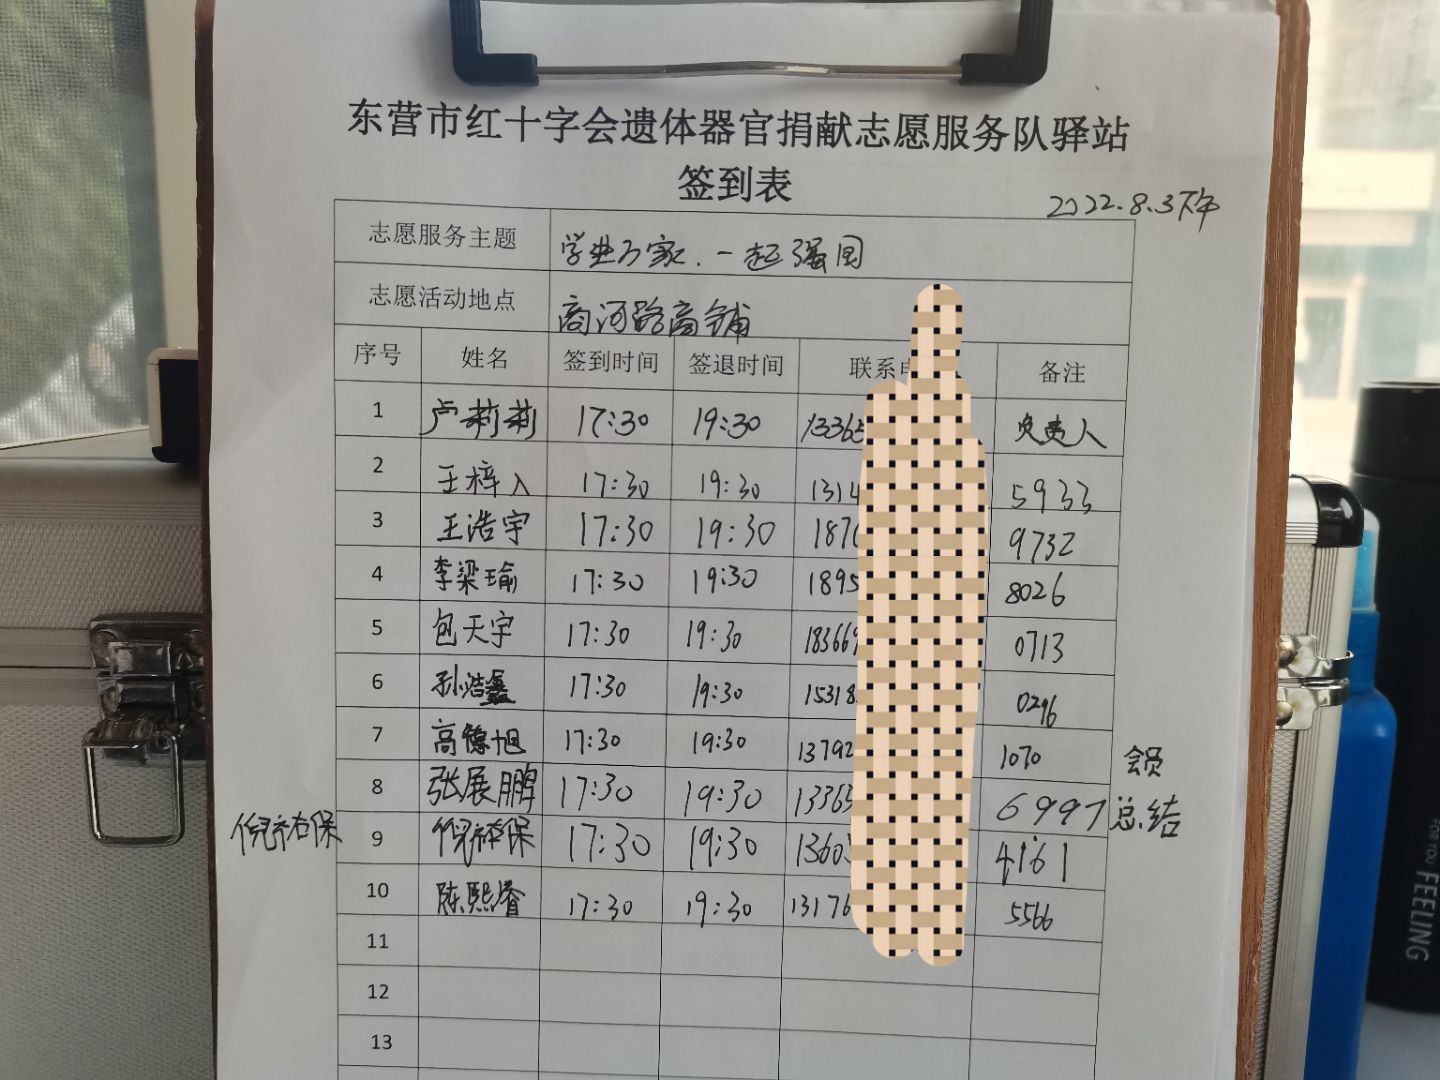 东营市红十字会遗体器官捐献志愿服务队驿站
签到表
2022.8.3下午
志愿服务主题 学业万家.一起强国
志愿活动地点 商河路商铺
序号 姓名 签到时间 签退时间 联系电 备注
1 卢莉莉 17:30 19:30 13365 负责人
2 王梓入 17:30 19:30 1314 5933
3 王浩宇 17:30 19:30 187 9732
4 李梁瑜 17:30 19:30 1895 8026
5 包天宇 17:30 19:30 18366 0713
6 孙浩鑫 17:30 19:30 15318 0296
7 高德旭 17:30 19:30 13792 1070 会员
8 张展鹏 17:30 19:30 13365 6997 总结
倪祐保 9 倪祐保 17:30 19:30 1360 4161
10 陈熙睿 17:30 19:30 13176 5566
11
12
13
FOR YOU FEELING